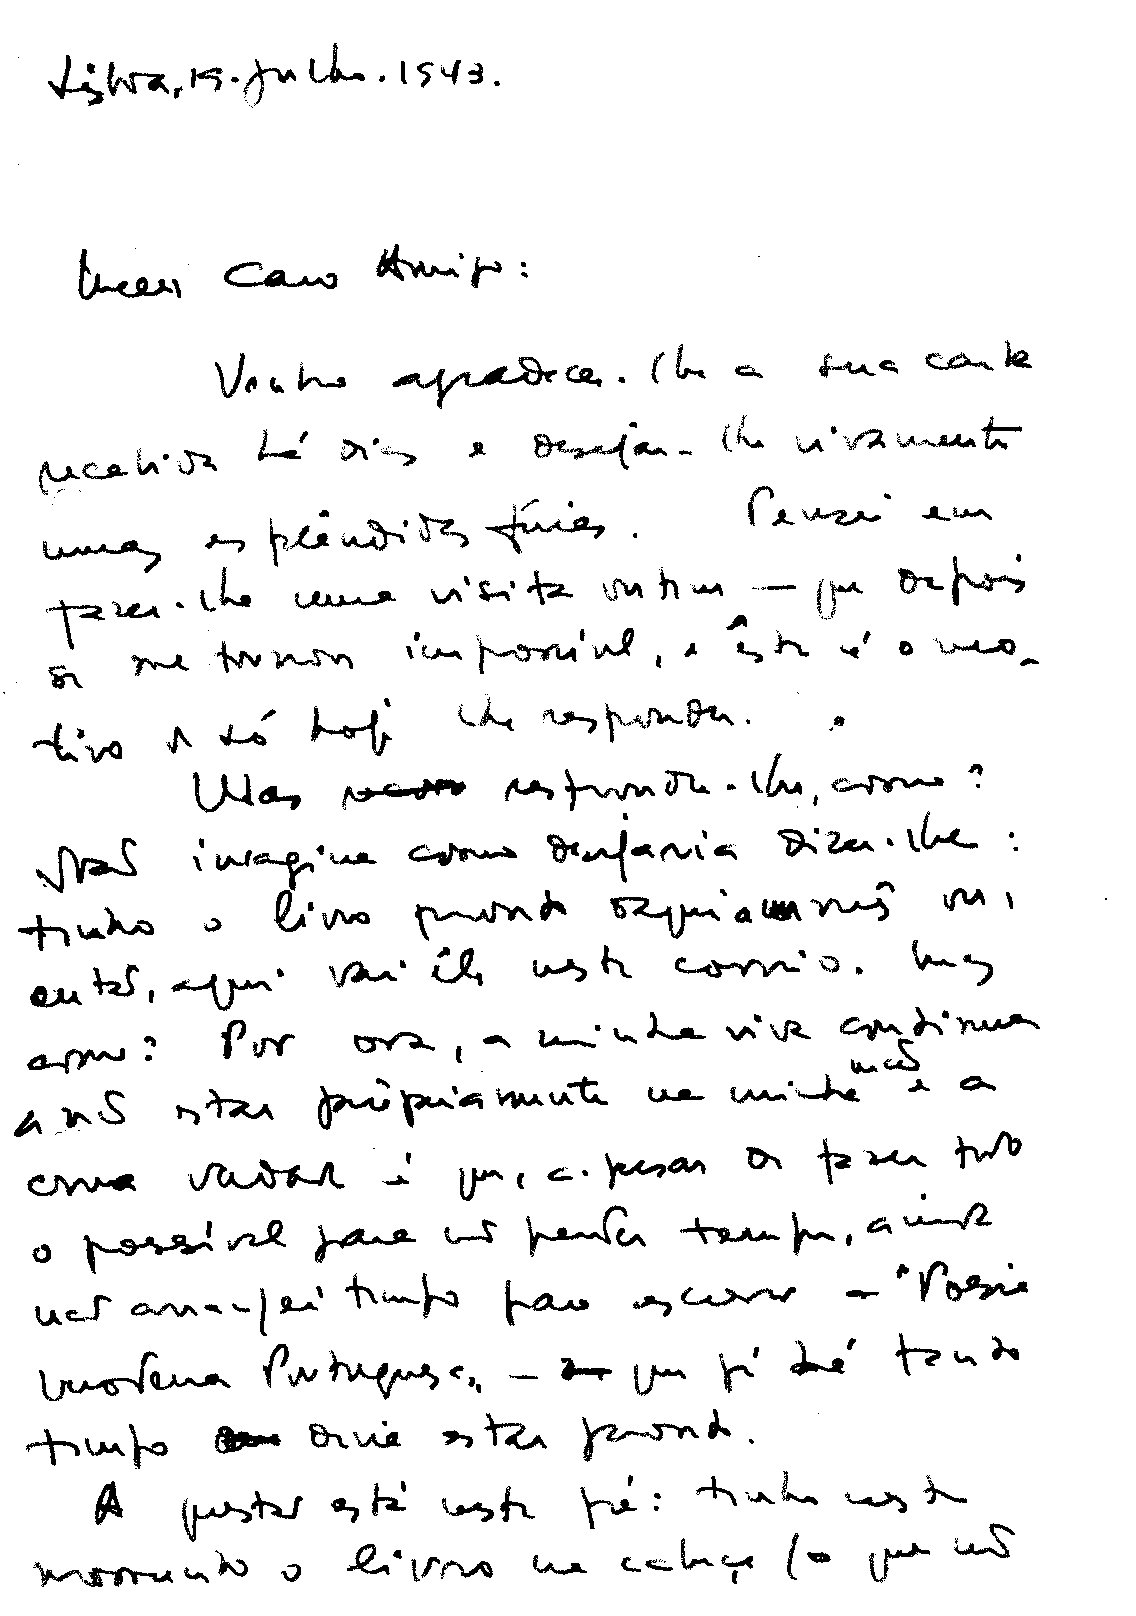 Lisboa, 19. Julho. 1943.
Meu Caro Amigo:
Venho agradecer-lhe a sua carta
recebida há dias e desejar-lhe vivamente
umas esplêndidas férias. Pensei em
fazer-lhe uma visita ontem — que depois
se me tornou impossível, e êste é o mo-
tivo de só hoje lhe responder.
Mas responder-lhe, como?
Nas imagina como desejaria dizer-lhe:
tenho o livro pronto
então, aqui vai êle neste correio. Mas
como? Por ora, a minha vida continua
a não estar pròpriamente na minha mão e a
coisa verdade é que, apesar de fazer tudo
o possível para não perder tempo, ainda
não arranjei tempo para escrever a "Poesia
Moderna Portuguesa" — que já há tanto
tempo devia estar pronto.
A questão está neste pé: tenho neste
momento o livro na cabeça (o que não